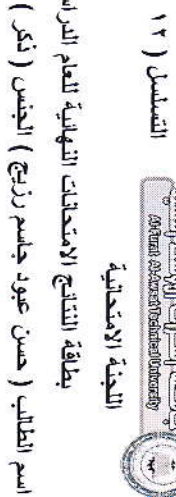 التسلسل ( ١٢
Al-Furat Al-Awsat Technical University
اللجنة الامتحانية
بطاقة النتائج الامتحانات النهائية للعام
اسم الطالب ( حسن عبود جاسم رزيج ) الجنس ( ذكر )